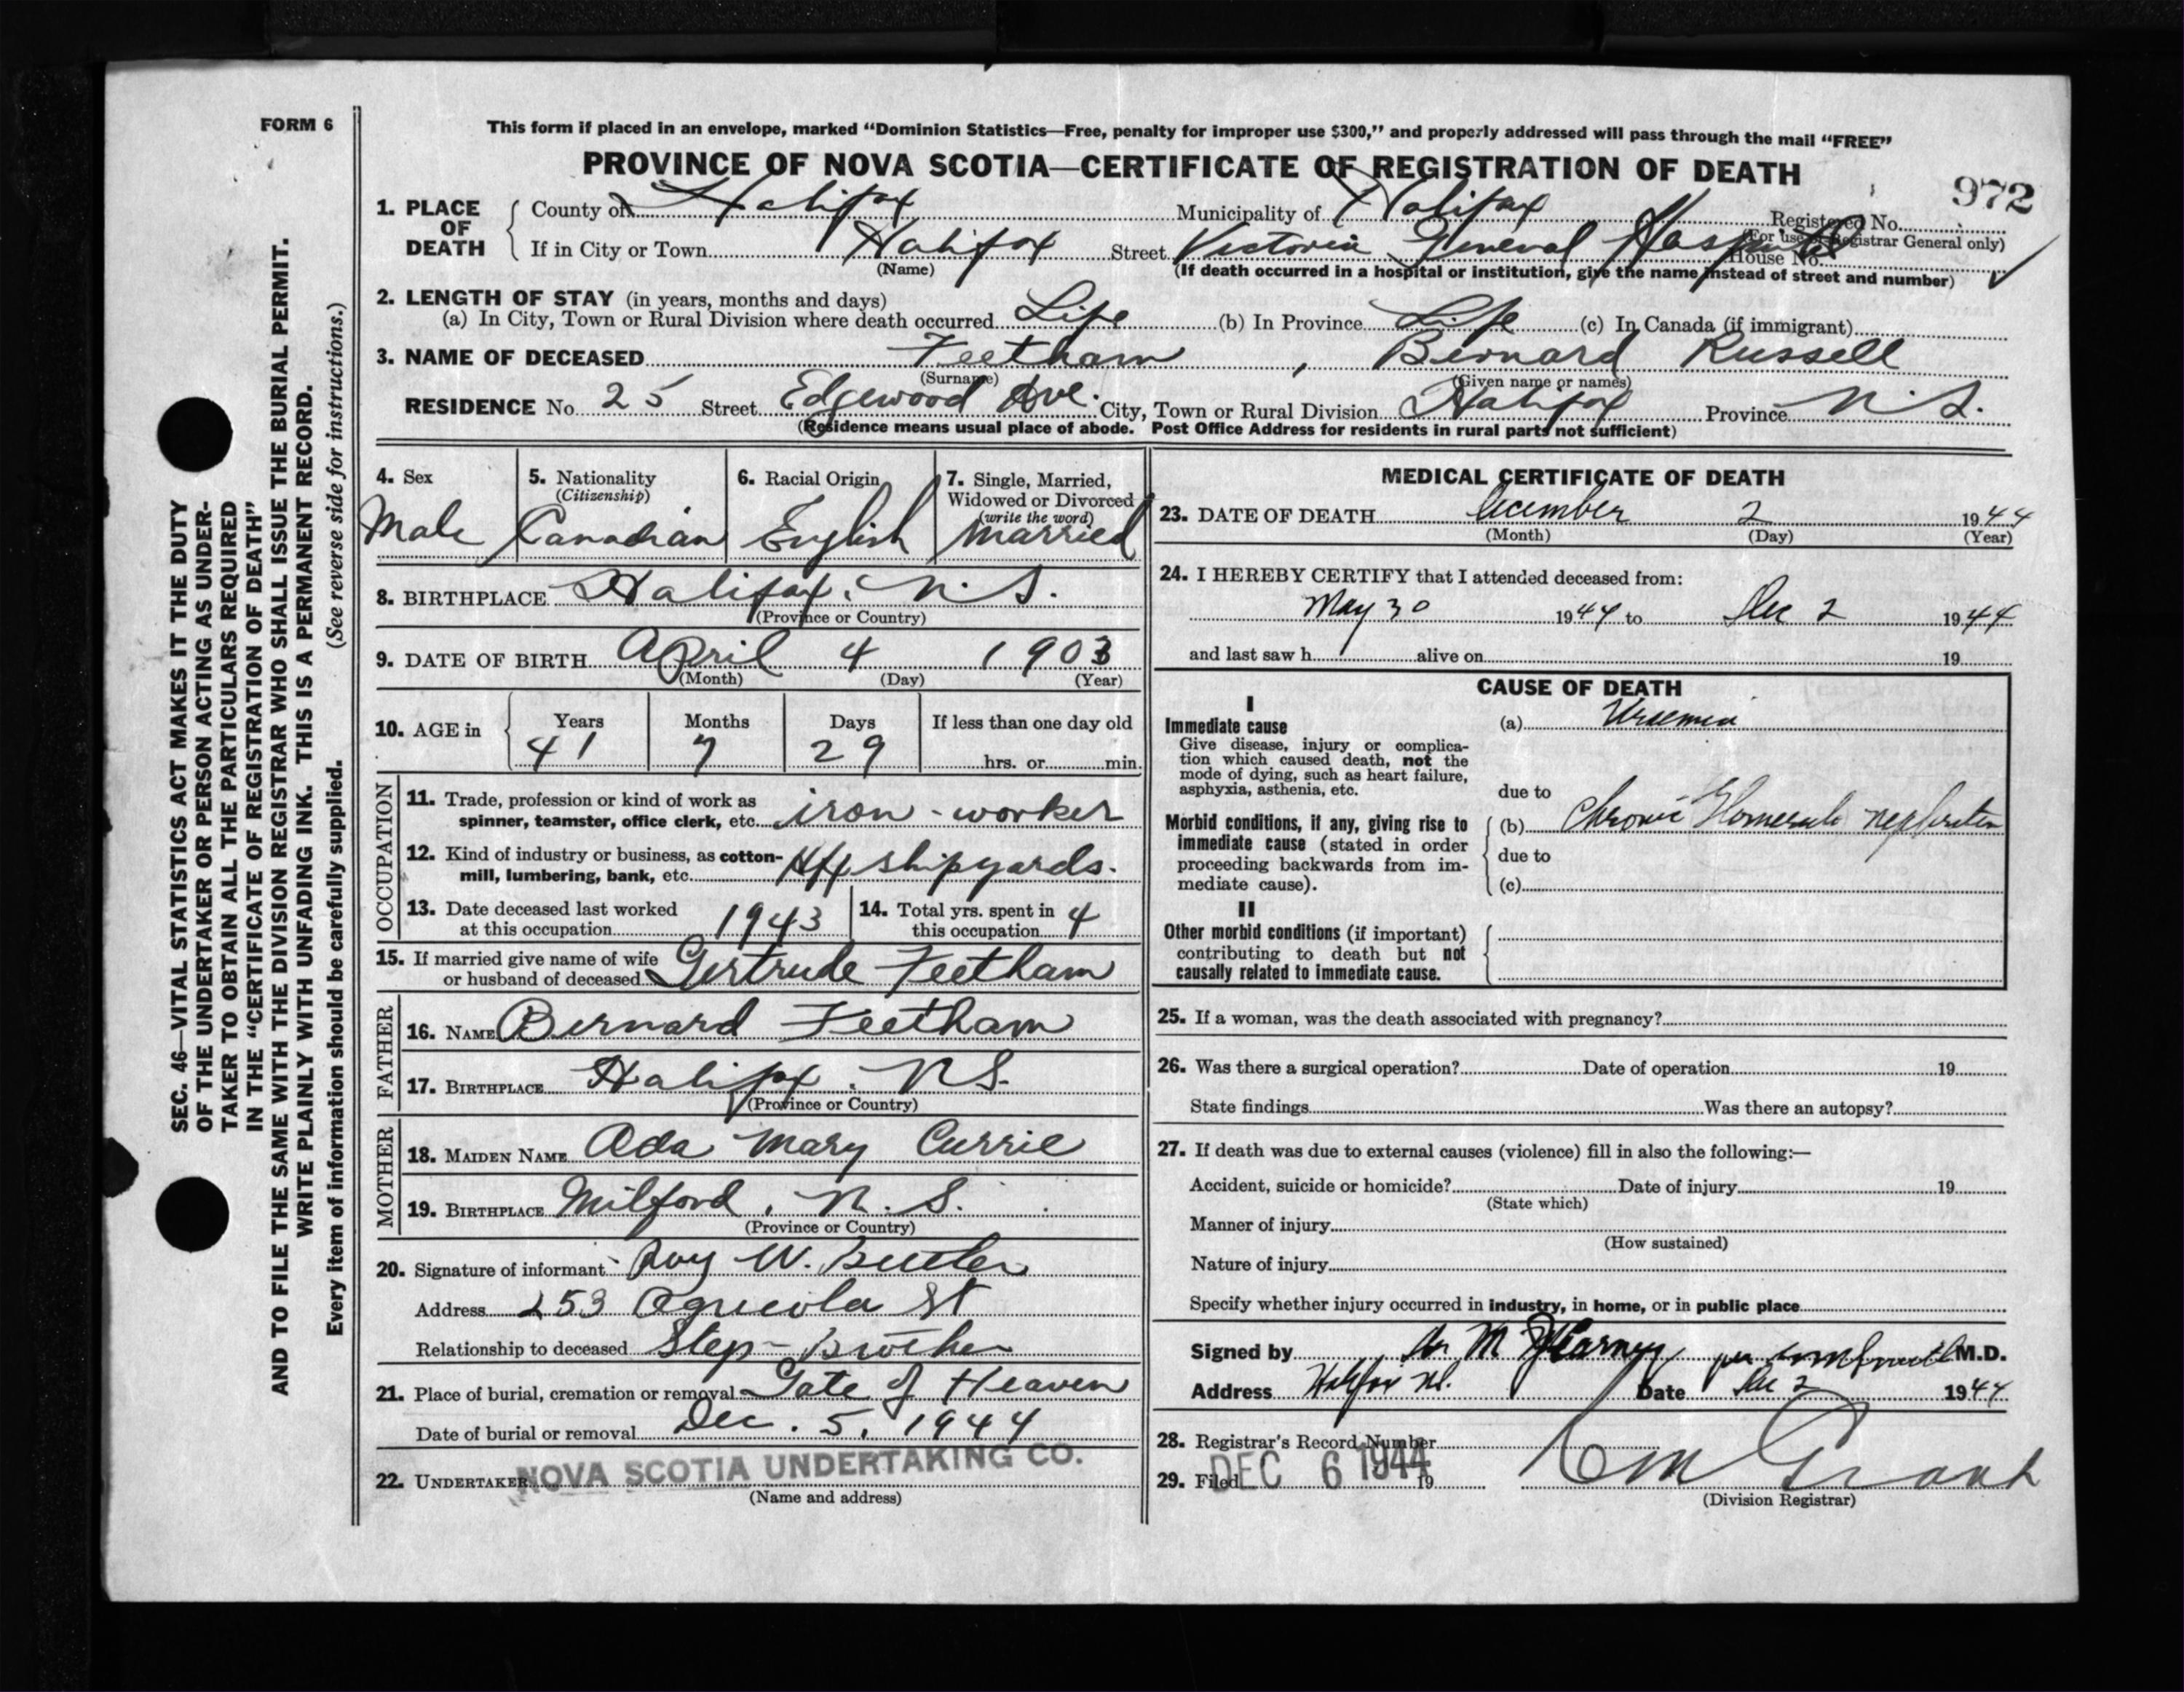 FORM 6
This form if placed in an envelope, marked "Dominion Statistics—Free, penalty for improper use $300," and properly addressed will pass through the mail "FREE"
PROVINCE OF NOVA SCOTIA—CERTIFICATE OF REGISTRATION OF DEATH
972
1. PLACE OF DEATH
County of Halifax Municipality of Halifax Registered No.
(For use of Registrar General only)
If in City or Town Halifax Street Victoria General Hospital House No.
(Name) (If death occurred in a hospital or institution, give the name instead of street and number)
2. LENGTH OF STAY (in years, months and days)
(a) In City, Town or Rural Division where death occurred Life (b) In Province Life (c) In Canada (if immigrant)
3. NAME OF DECEASED Feetham, Bernard Russell
(Surname) (Given name or names)
RESIDENCE No. 25 Street Edgewood Ave. City, Town or Rural Division Halifax Province N.S.
(Residence means usual place of abode. Post Office Address for residents in rural parts not sufficient)
SEC. 46—VITAL STATISTICS ACT MAKES IT THE DUTY
OF THE UNDERTAKER OR PERSON ACTING AS UNDER-
TAKER TO OBTAIN ALL THE PARTICULARS REQUIRED
IN THE "CERTIFICATE OF REGISTRATION OF DEATH"
AND TO FILE THE SAME WITH THE DIVISION REGISTRAR WHO SHALL ISSUE THE BURIAL PERMIT.
WRITE PLAINLY WITH UNFADING INK. THIS IS A PERMANENT RECORD.
Every item of information should be carefully supplied. (See reverse side for instructions.)
4. Sex
Male
5. Nationality
(Citizenship)
Canadian
6. Racial Origin
English
7. Single, Married,
Widowed or Divorced
(write the word)
Married
8. BIRTHPLACE Halifax, N.S.
(Province or Country)
9. DATE OF BIRTH April 4 1903
(Month) (Day) (Year)
10. AGE in
Years Months Days If less than one day old
41 7 29 hrs. or min.
OCCUPATION
11. Trade, profession or kind of work as
spinner, teamster, office clerk, etc. iron-worker
12. Kind of industry or business, as cotton-
mill, lumbering, bank, etc. Hfx shipyards.
13. Date deceased last worked
at this occupation 1943
14. Total yrs. spent in
this occupation 4
15. If married give name of wife
or husband of deceased Gertrude Feetham
FATHER
16. NAME Bernard Feetham
17. BIRTHPLACE Halifax, N.S.
(Province or Country)
MOTHER
18. MAIDEN NAME Ada Mary Currie
19. BIRTHPLACE Milford, N.S.
(Province or Country)
20. Signature of informant Roy W. Butler
Address 253 Agricola St
Relationship to deceased Step-Brother
21. Place of burial, cremation or removal Gate of Heaven
Date of burial or removal Dec. 5, 1944
22. UNDERTAKER NOVA SCOTIA UNDERTAKING CO.
(Name and address)
MEDICAL CERTIFICATE OF DEATH
23. DATE OF DEATH December 2 1944
(Month) (Day) (Year)
24. I HEREBY CERTIFY that I attended deceased from:
May 30 1944 to Dec 2 1944
and last saw h alive on 19
CAUSE OF DEATH
I
Immediate cause
Give disease, injury or complica-
tion which caused death, not the
mode of dying, such as heart failure,
asphyxia, asthenia, etc.
(a) Uraemia
due to
Morbid conditions, if any, giving rise to
immediate cause (stated in order
proceeding backwards from im-
mediate cause).
(b) Chronic Glomerulo nephritis
due to
(c)
II
Other morbid conditions (if important)
contributing to death but not
causally related to immediate cause.
25. If a woman, was the death associated with pregnancy?
26. Was there a surgical operation? Date of operation 19
State findings Was there an autopsy?
27. If death was due to external causes (violence) fill in also the following:—
Accident, suicide or homicide? Date of injury 19
(State which)
Manner of injury
(How sustained)
Nature of injury
Specify whether injury occurred in industry, in home, or in public place
Signed by M per M.D.
Address Halifax NS. Date Dec 2 1944
28. Registrar's Record Number
29. Filed DEC 6 1944 19
(Division Registrar)